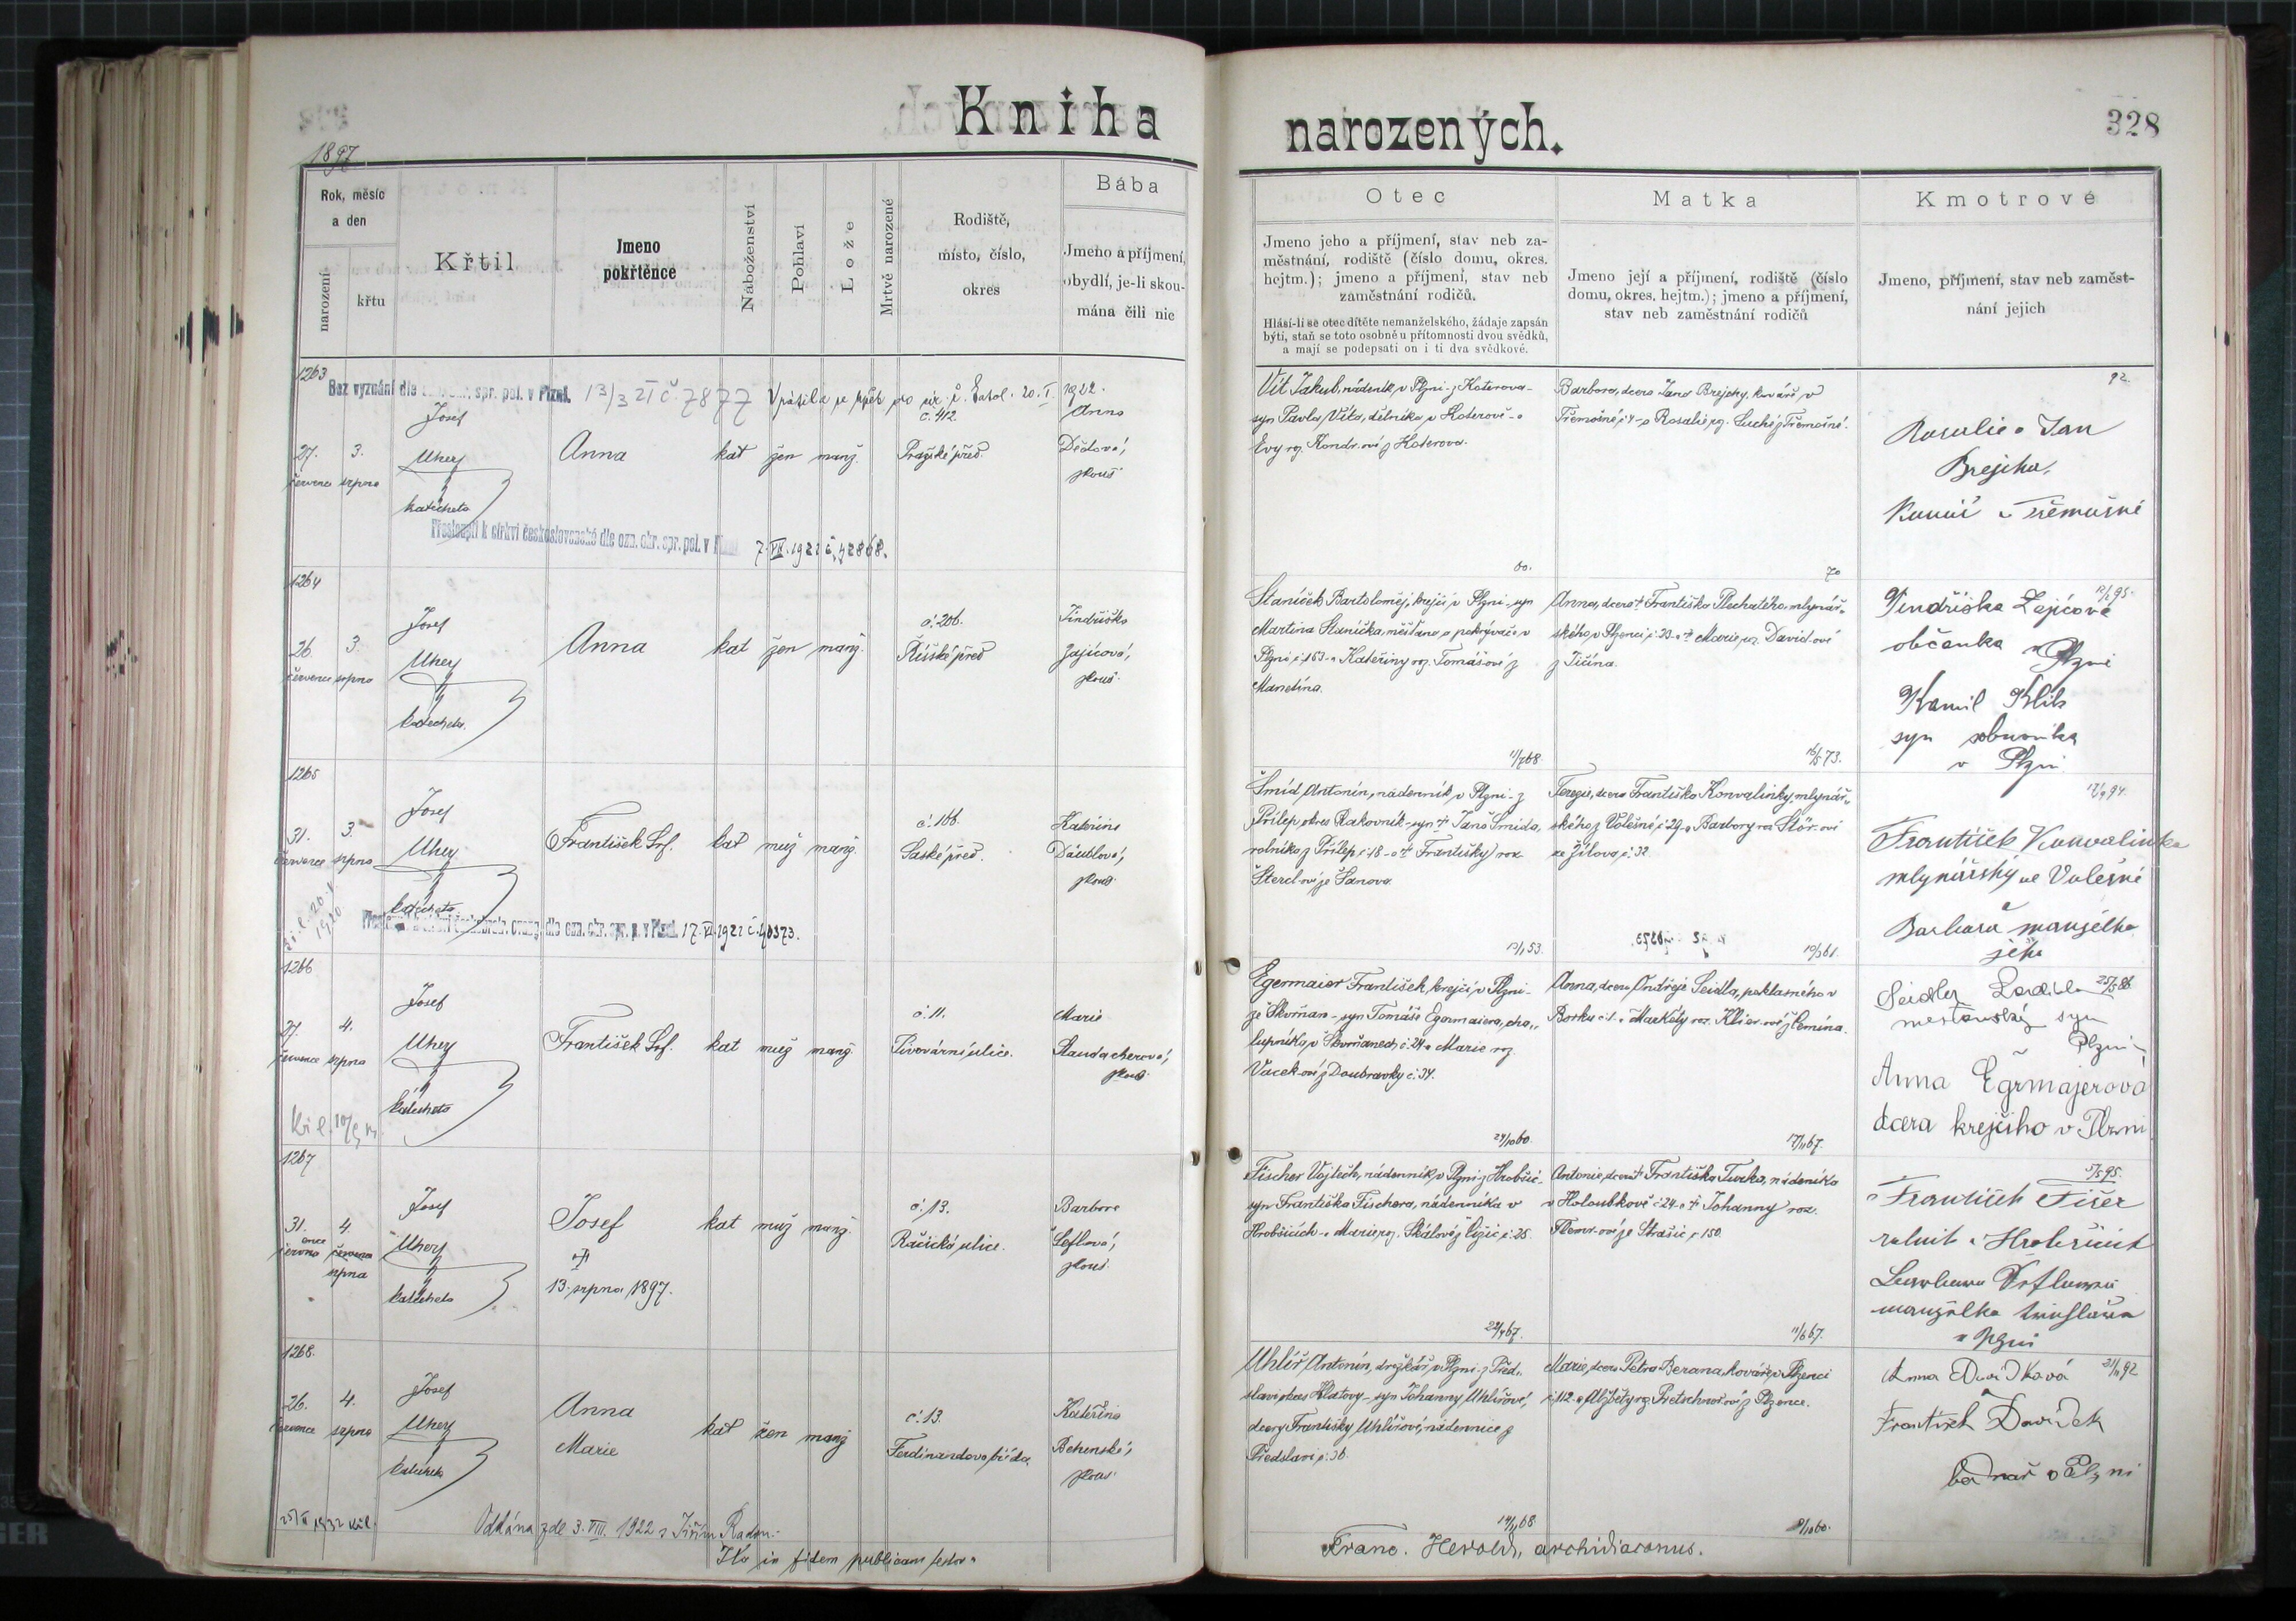 Kniha
narozených.
328
1897
Rok, měsíc
a den
narození
křtu
Křtil
Jmeno
pokřtěnce
Náboženství
Pohlaví
Lože
Mrtvě narozené
Rodiště,
místo, číslo,
okres
Bába
Jmeno a příjmení,
obydlí, je-li skou-
mána čili nic
Otec
Jmeno jeho a příjmení, stav neb za-
městnání, rodiště (číslo domu, okres.
hejtm.); jmeno a příjmení, stav neb
zaměstnání rodičů.
Hlásí-li se otec dítěte nemanželského, žádaje zapsán
býti, staň se toto osobně u přítomnosti dvou svědků,
a mají se podepsati on i ti dva svědkové.
Matka
Jmeno její a příjmení, rodiště (číslo
domu, okres. hejtm.); jmeno a příjmení,
stav neb zaměstnání rodičů
Kmotrové
Jmeno, příjmení, stav neb zaměst-
nání jejich
1263
Bez vyznání dle spr. pol. v Plzni. 13/3 21 č. 7877
20. I. 1922.
27.
července
3.
srpna
Josef
Uhery
katecheta
Anna
kat
žen
manž.
č. 412.
Pražské před.
Anna
Dědová,
zkouš.
Přestoupil k církvi československé dle ozn. okr. spr. pol. v Plzni 7. VII. 1921 č. 42868.
Vít Jakub, nádeník v Plzni z Koterova-
syn Pavla Víta, dělníka v Koterově - a
Evy roz. Kondr-ové z Koterova.
60.
Barbora, dcera Jana Brejchy, kováře v
Třemošné č 4 - a Rosalie roz. Suché z Třemošné.
70
92.
Rosalie a Jan
Brejcha,
Kovář v Třemošné
1264
26.
července
3.
srpna
Josef
Uhery
katecheta.
Anna
kat
žen
manž.
č. 206.
Říšské před
Jindřiška
Zajícová,
zkouš.
Staníček Bartoloměj, krejčí v Plzni - syn
Martina Staníčka, měšťana a pokrývače v
Plzni č. 163 - a Kateřiny roz. Tomášové z
Manetína.
11/7 68.
Anna, dcera † Františka Plechatého, mlynář-
ského v Plzenci č. 23 - a † Marie roz. David-ové
z Jičína.
16/5 73.
95.
Jindřiška Zajícová
občanka v Plzni
Kamil Klik
syn
v Plzni
1265
31.
července
3.
srpna
Josef
Uhery
katecheta
František Ser.
kat
muž
manž.
č. 166.
Saské před.
Kateřina
Daiblová,
zkouš.
17. VI. 1921 č. 40373.
Šmíd Antonín, nádenník v Plzni - z
Přílep, okres Rakovník - syn † Jana Šmída,
rolníka z Přílep č. 18 - a † Františky roz.
Štercl-ové ze Šanova.
13/1 53.
Terezie, dcera Františka Konvalinky, mlynář-
ského z Volešné č. 29 - a Barbory roz. Stör-ové
ze Žilova č. 32.
10/3 61.
12/9 94.
František Konvalinka
mlynářský ve Volešné
Barbara manželka
jeho
1266
27.
července
4.
srpna
Josef
Uhery
katecheta
František Ser.
kat
muž
manž.
č. 11.
Pivovární ulice.
Marie
Staudacherová,
zkouš.
Egermaier František, krejčí v Plzni -
ze Skvrňan - syn Tomáše Egermaiera, cha-
lupníka v Skvrňanech č. 24 a Marie roz.
Vacek-ové z Doubravky č. 34.
24/10 60.
Anna, dcera Ondřeje Seidla, poklasného v
Borku č. 1. a Markéty roz. Klier-ové z Lemína.
17/11 67.
25/5 86
Seidler
měšťanský syn
Plzni
Anna Egrmajerová
dcera krejčího v Plzni
1267
31.
července
4.
června
srpna
Josef
Uhery
katecheta
Josef
†
13. srpna 1897.
kat
muž
manž.
č. 13.
Račická ulice.
Barbora
Šeflová,
zkouš.
Fischer Vojtěch, nádenník v Plzni z Hrobčic -
syn Františka Fischera, nádenníka v
Hrobčicích - a Marie roz. Skálové z Čižic č. 25.
22/4 67.
Antonie, dcera † Františka Turka, nádeníka
v Holoubkově č 24 - a † Johanny roz.
ové ze Strašic č 150.
11/6 67.
5/5 95.
František Fišer
rolník v Hrobčicích
manželka
v Plzni
1268.
26.
července
4.
srpna
Josef
Uhery
katecheta
Anna
Marie
kat
žen
manž
č. 13.
Ferdinandova třída
Kateřina
Behenská,
zkouš.
Oddána zde 3. VIII. 1922 s Jiřím Radou.
Ita in fidem publicam testor
Uhlíř Antonín, drožkář v Plzni - z Před-
slavi okres Klatovy - syn Johanny Uhlířové,
dcery Františky Uhlířové, nádennice z
Předslavi č. 36.
14/11 68
Marie, dcera Petra Berana, kováře v Plzenci
č. 112. a Alžběty roz. Pretschner-ové z Plzence.
9/10 60.
21/11 92
Anna Davídková
František Davídek
bednář v Plzni
Franc. Herold, archidiaconus.